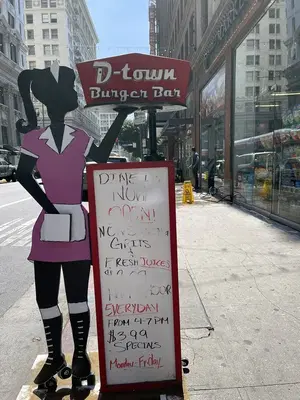 D-town
Burger Bar
DINE IN
NOW
OPEN!
& FRESH JUICES
EVERYDAY
FROM 4-7 PM
$3.99
SPECIALS
Monday Friday